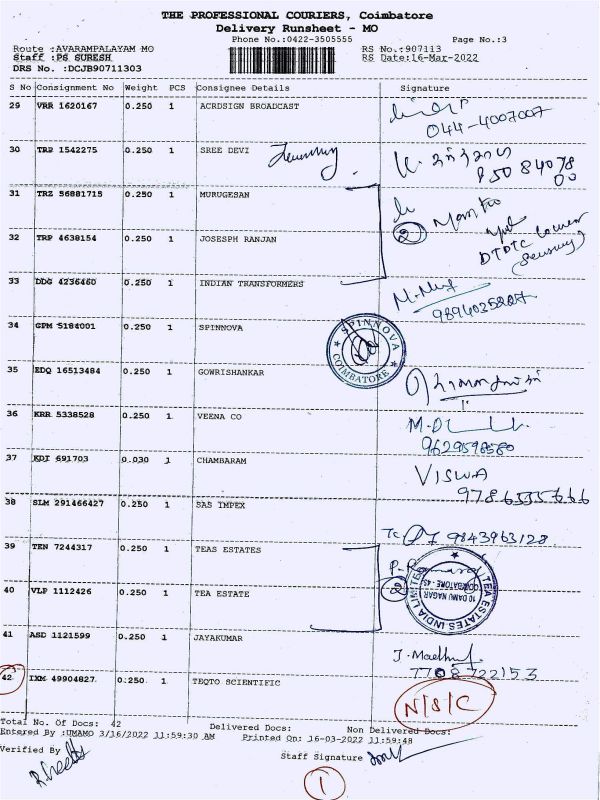 THE PROFESSIONAL COURIERS, Coimbatore
Delivery Runsheet - MO
Phone No.:0422-3505555 Page No.:3
Route :AVARAMPALAYAM MO RS No.:907113
Staff :PS SURESH RS Date:16-Mar-2022
DRS No. :DCJB90711303
S No Consignment No Weight PCS Consignee Details Signature
29 VRR 1620167 0.250 1 ACRDSIGN BROADCAST
044-4007007
30 TRP 1542275 0.250 1 SREE DEVI
31 TRZ 56881715 0.250 1 MURUGESAN
2
32 TRP 4638154 0.250 1 JOSESPH RANJAN
33 DDG 4236460 0.250 1 INDIAN TRANSFORMERS
34 GPM 5184001 0.250 1 SPINNOVA
SPINNOVA
COIMBATORE
35 EDQ 16513484 0.250 1 GOWRISHANKAR
36 KRR 5338528 0.250 1 VEENA CO
9629598580
37 KDI 691703 0.030 1 CHAMBARAM
VISWA
9786555666
38 SLM 291466427 0.250 1 SAS IMPEX
9843963128
39 TEN 7244317 0.250 1 TEAS ESTATES
2
TEA ESTATES INDIA LIMITED
10 DAMU NAGAR
COIMBATORE - 45
40 VLP 1112426 0.250 1 TEA ESTATE
41 ASD 1121599 0.250 1 JAYAKUMAR
7708722153
42 IXM 49904827 0.250 1 TEQTO SCIENTIFIC
N/S/C
Total No. Of Docs: 42 Delivered Docs: Non Delivered Docs:
Entered By :UMAMO 3/16/2022 11:59:30 AM Printed On: 16-03-2022 11:59:48
Verified By Staff Signature
1